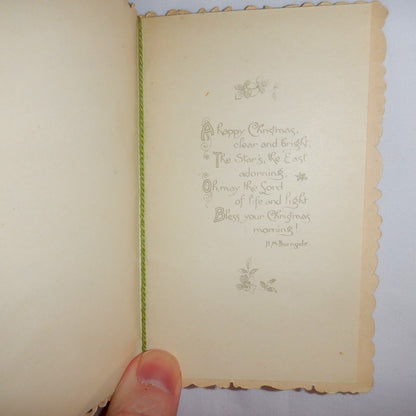 A happy Christmas,
clear and bright,
The Stars, the East
adorning.
Oh, may the Lord
of life and light
Bless your Christmas
morning!
H.M. Burnside